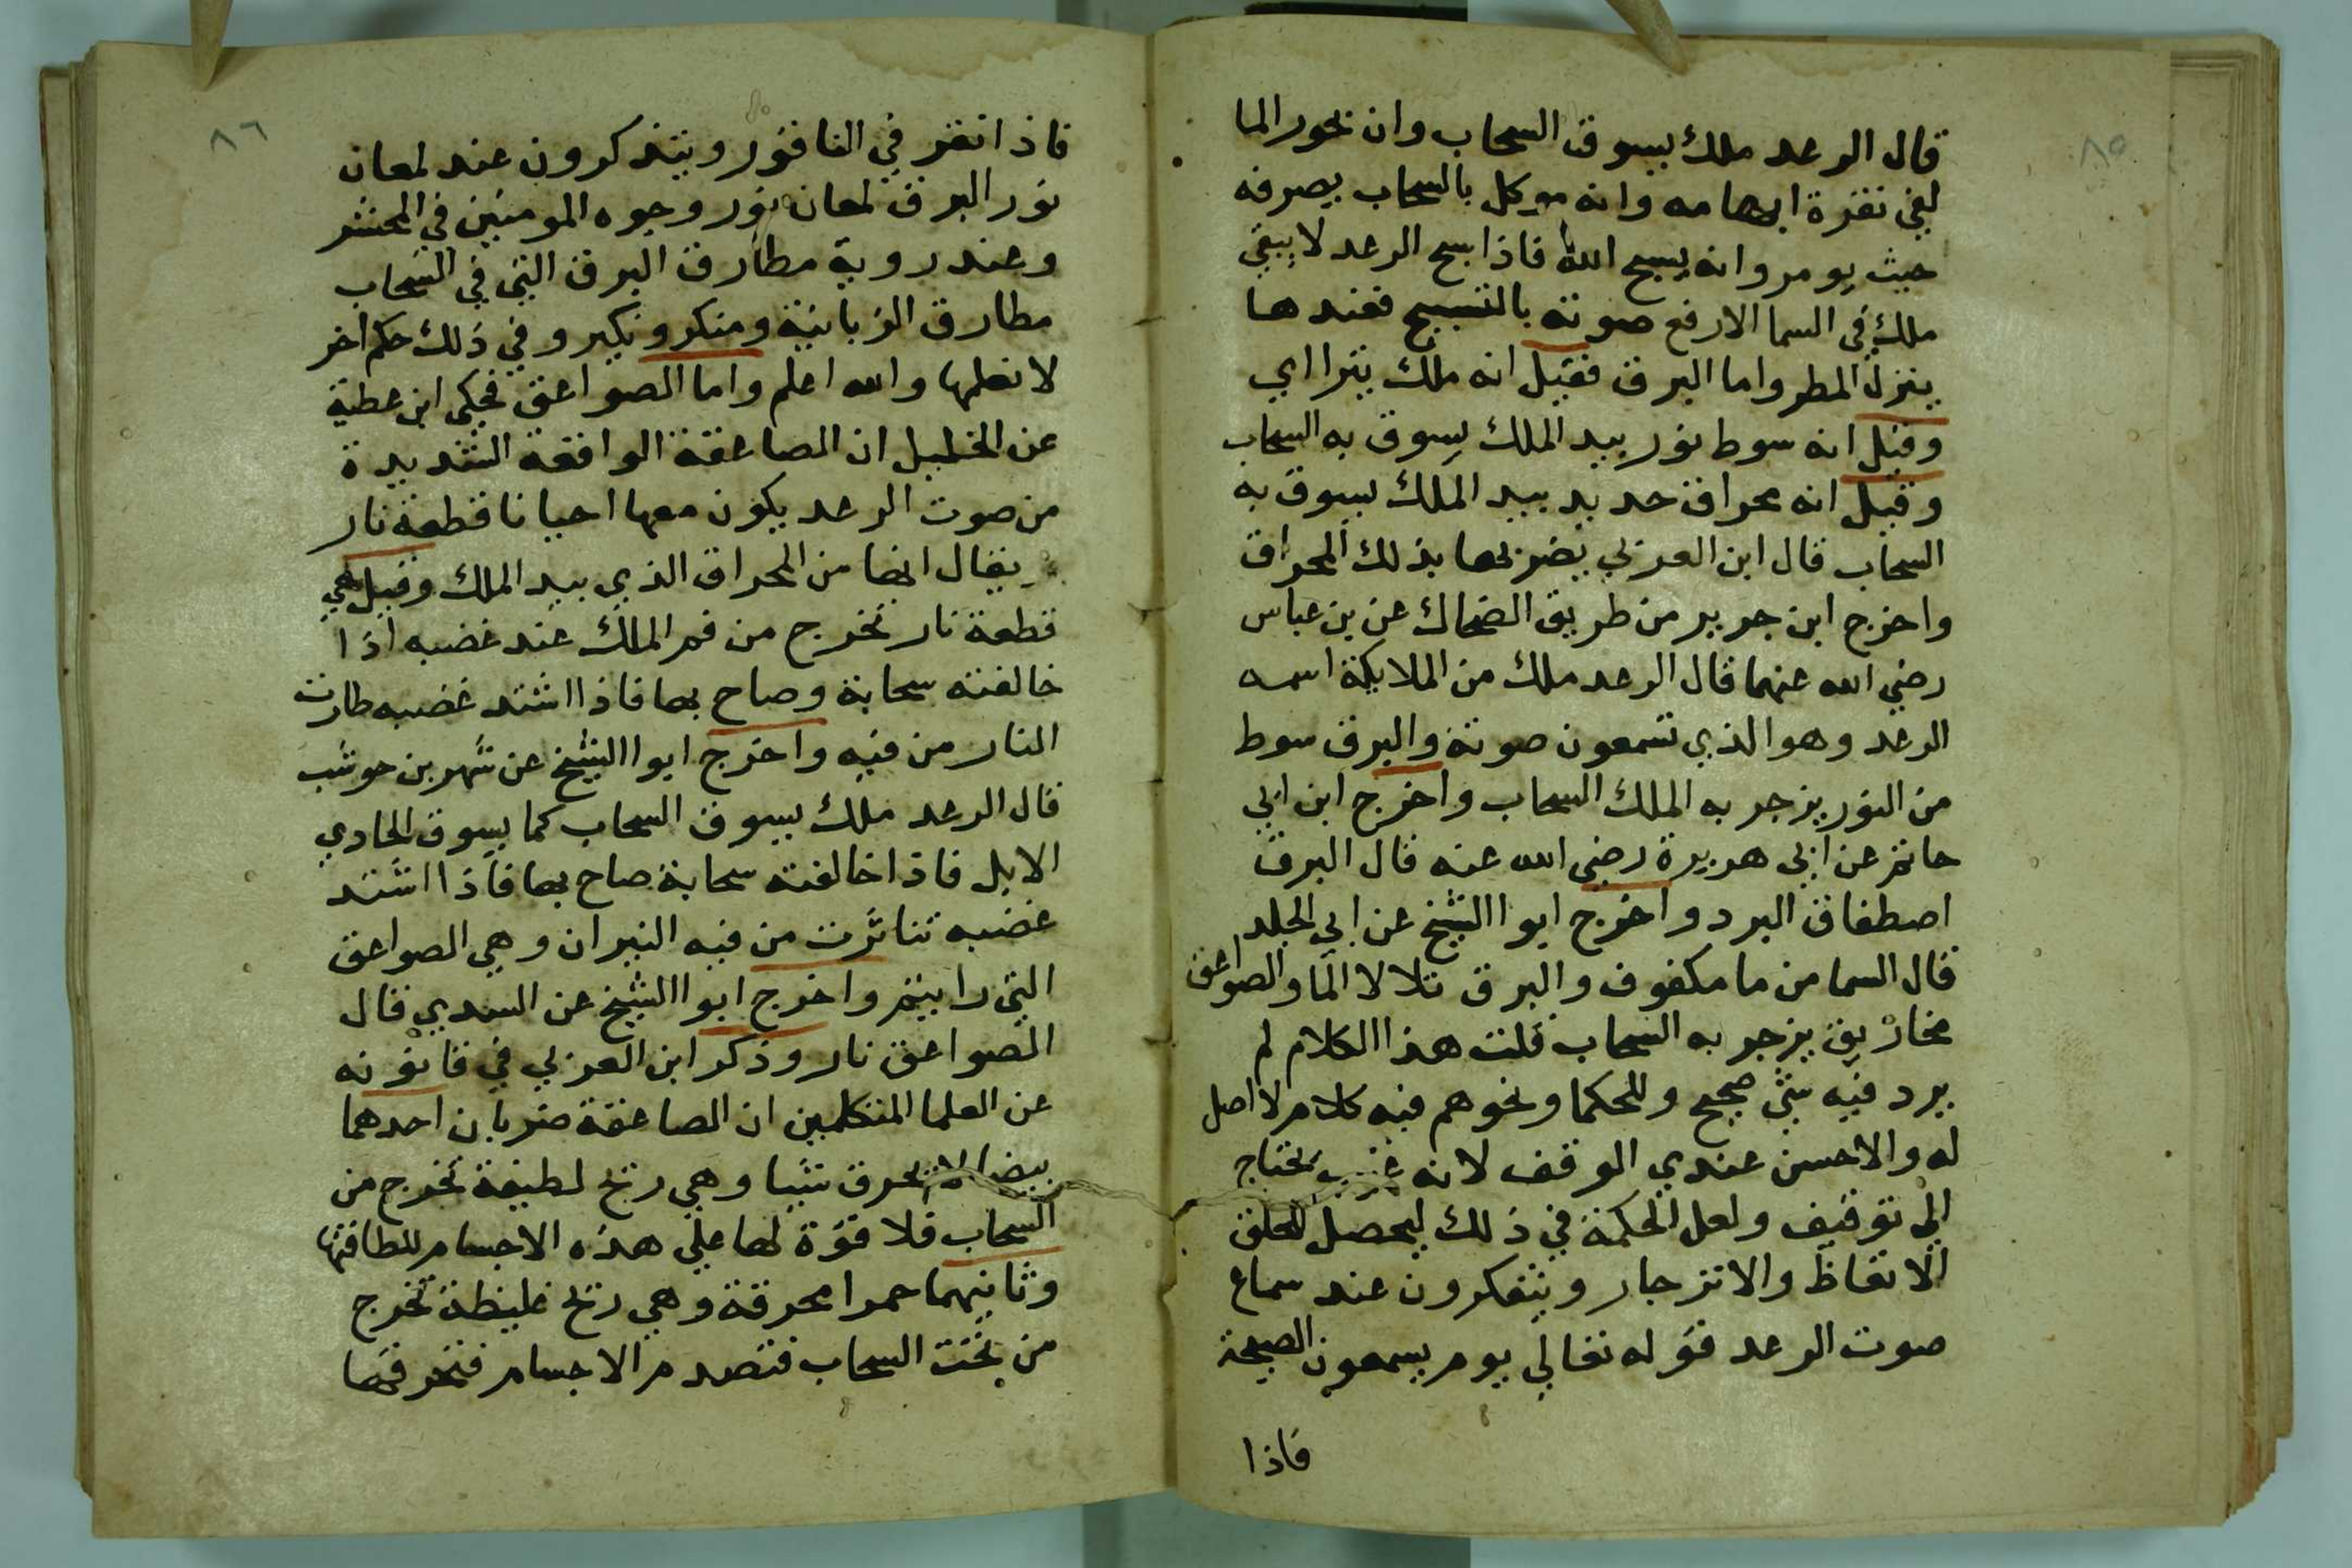 ٨٥
قال الرعد ملك يسوق السحاب وان بخور الما
لفي نقرة ابهامه وانه موكل بالسحاب يصرفه
حيث يومر وانه يسبح الله فاذا سبح الرعد لا يبقي
ملك في السما الا رفع صوته بالتسبيح فعندها
ينزل المطر واما البرق فقيل انه ملك يتراا اي
وقيل انه سوط نور بيد الملك يسوق به السحاب
وقيل انه محراق حديد بيد الملك يسوق به
السحاب قال ابن العربي يضربها بذلك المحراق
واخرج ابن جرير من طريق الضحاك عن بن عباس
رضي الله عنهما قال الرعد ملك من الملايكة اسمه
الرعد وهو الذي تسمعون صوته والبرق سوط
من النور يزجر به الملك السحاب واخرج ابن ابي
حاتم عن ابي هريرة رضي الله عنه قال البرق
اصطفاق البرد واخرج ابوا الشيخ عن ابي الجلد
قال السما من ما مكفوف والبرق تلالا الما والصواعق
مخاريق يزجر به السحاب قلت هذا الكلام لم
يرد فيه شي صحيح وللحكما ونحوهم فيه كلام لا اصل
له والاحسن عندي الوقف لانه غيب يحتاج
الي توقيف ولعل الحكمة في ذلك ليحصل للخلق
الاتعاظ والانزجار ويتفكرون عند سماع
صوت الرعد قوله تعالي يوم يسمعون الصيحة
فاذا
٨٦
فاذا نقر في الناقور ويتذكرون عند لمعان
نور البرق لمعان نور وجوه المومنين في المحشر
وعند روية مطارق البرق التي في السحاب
مطارق الزبانية ومنكر ونكير وفي ذلك حكم اخر
لا نعلمها والله اعلم واما الصواعق فحكي ابن عطية
عن الخليل ان الصاعقة الواقعة الشديدة
من صوت الرعد يكون معها احيانا قطعة نار
يقال انها من المحراق الذي بيد الملك وقيل هي
قطعة نار تخرج من فم الملك عند غضبه اذا
خالفته سحابة وصاح بها فاذا اشتد غضبه طارت
النار من فيه واخرج ابوا الشيخ عن شهر بن حوشب
قال الرعد ملك يسوق السحاب كما يسوق الحادي
الابل فاذا خالفته سحابة صاح بها فاذا اشتد
غضبه تناثرت من فيه النيران وهي الصواعق
التي رايتم واخرج ابوا الشيخ عن السدي قال
الصواعق نار وذكر ابن العربي في قانونه
عن العلما المتكلمين ان الصاعقة ضربان احدهما
بيضا لا تحرق شيا وهي ريح لطيفة تخرج من
السحاب فلا قوة لها علي هذه الاجسام للطافتها
وثانيهما حمرا محرقة وهي ريح غليظة تخرج
من تحت السحاب فتصدم الاجسام فتحرقها